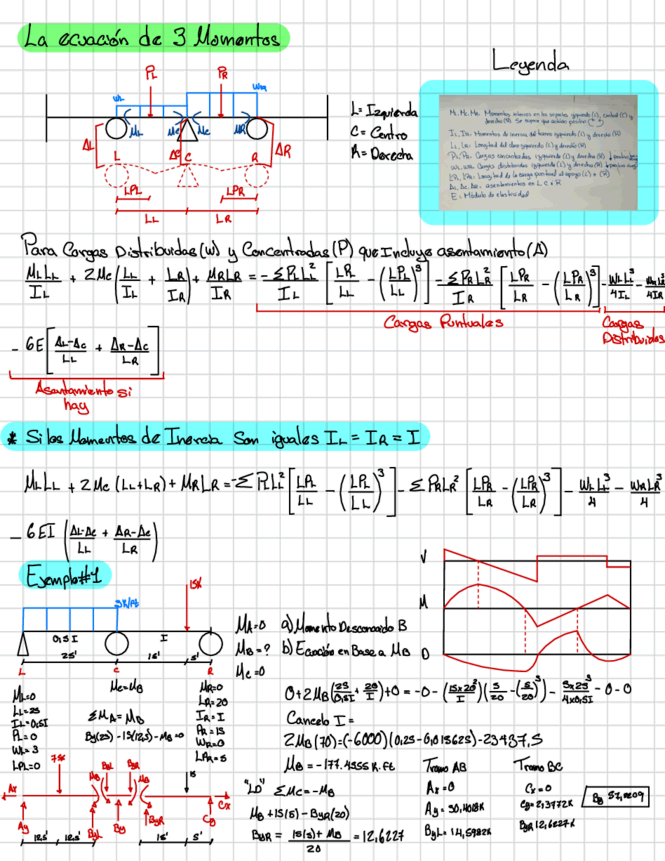 La ecuación de 3 Momentos
Leyenda
PL PR
WL WR
ML Mc Mc MR
ΔL Δc ΔR
L C R
LPL LPR
LL LR
L= Izquierda
C= Centro
R= Derecha
ML, Mc, MR: Momentos internos en los soportes izquierdo (L), central (C) y
derecho (R). Se supone que actúan positivo
IL, IR: Momentos de inercia del tramo izquierdo (L) y derecho (R)
LL, LR: Longitud del claro izquierdo (L) y derecho (R)
PL, PR: Cargas concentradas izquierdo (L) y derecho (R)
WL, WR: Cargas distribuidas izquierdo (L) y derecho (R)
LPL, LPR: Longitud de la carga puntual al apoyo (L) o (R)
ΔL, Δc, ΔR: asentamientos en L, C o R
E= Módulo de elasticidad
Para Cargas Distribuidas (W) y Concentradas (P) que Incluye asentamiento (Δ)
MLLL/IL + 2Mc (LL/IL + LR/IR) + MRLR/IR = -ΣPLLL²/IL [LPL/LL - (LPL/LL)³] - ΣPRLR²/IR [LPR/LR - (LPR/LR)³] - WLLL³/4IL - WRLR³/4IR
Cargas Puntuales
Cargas
Distribuidas
- 6E [ΔL-Δc/LL + ΔR-Δc/LR]
Asentamiento si
hay
* Si los Momentos de Inercia Son iguales IL = IR = I
MLLL + 2Mc (LL+LR) + MRLR = -ΣPLLL² [LPL/LL - (LPL/LL)³] - ΣPRLR² [LPR/LR - (LPR/LR)³] - WLLL³/4 - WRLR³/4
- 6EI (ΔL-Δc/LL + ΔR-Δc/LR)
Ejemplo#1
15K
3K/Ft
0,5I I
25' 15' 5'
L C R
MA=0
MB=?
Mc=0
a) Momento Desconocido B
b) Ecuación en Base a MB
V
M
D
ML=0
LL=25
IL=0,5I
PL=0
WL=3
LPL=0
Mc=MB
ΣMA=MB
ByL(25)-75(12,5)-MB=0
MR=0
LR=20
IR=I
PR=15
WR=0
LPR=5
0+2MB(25/0,5I + 20/I)+0 = -0 - (15x20²/I)(5/20 - (5/20)³) - 3x25³/4x0,5I - 0 - 0
Cancelo I =
2MB(70)=(-6000)(0,25-0,015625)-23437,5
MB = -177,4555 K.ft
Tramo AB
Ax=0
Ay=30,4018K
ByL=44,5982K
Tramo BC
Cx=0
Cy=2,3772K
ByR 12,6227K
By 57,2209
75K
Ax Ay ByL MB ByL ByR By MB ByR 15 Cy Cx
12,5' 12,5' 15' 5'
"LD" ΣMc=-MB
MB+15(5)-ByR(20)
ByR = 15(5)+MB/20 = 12,6227